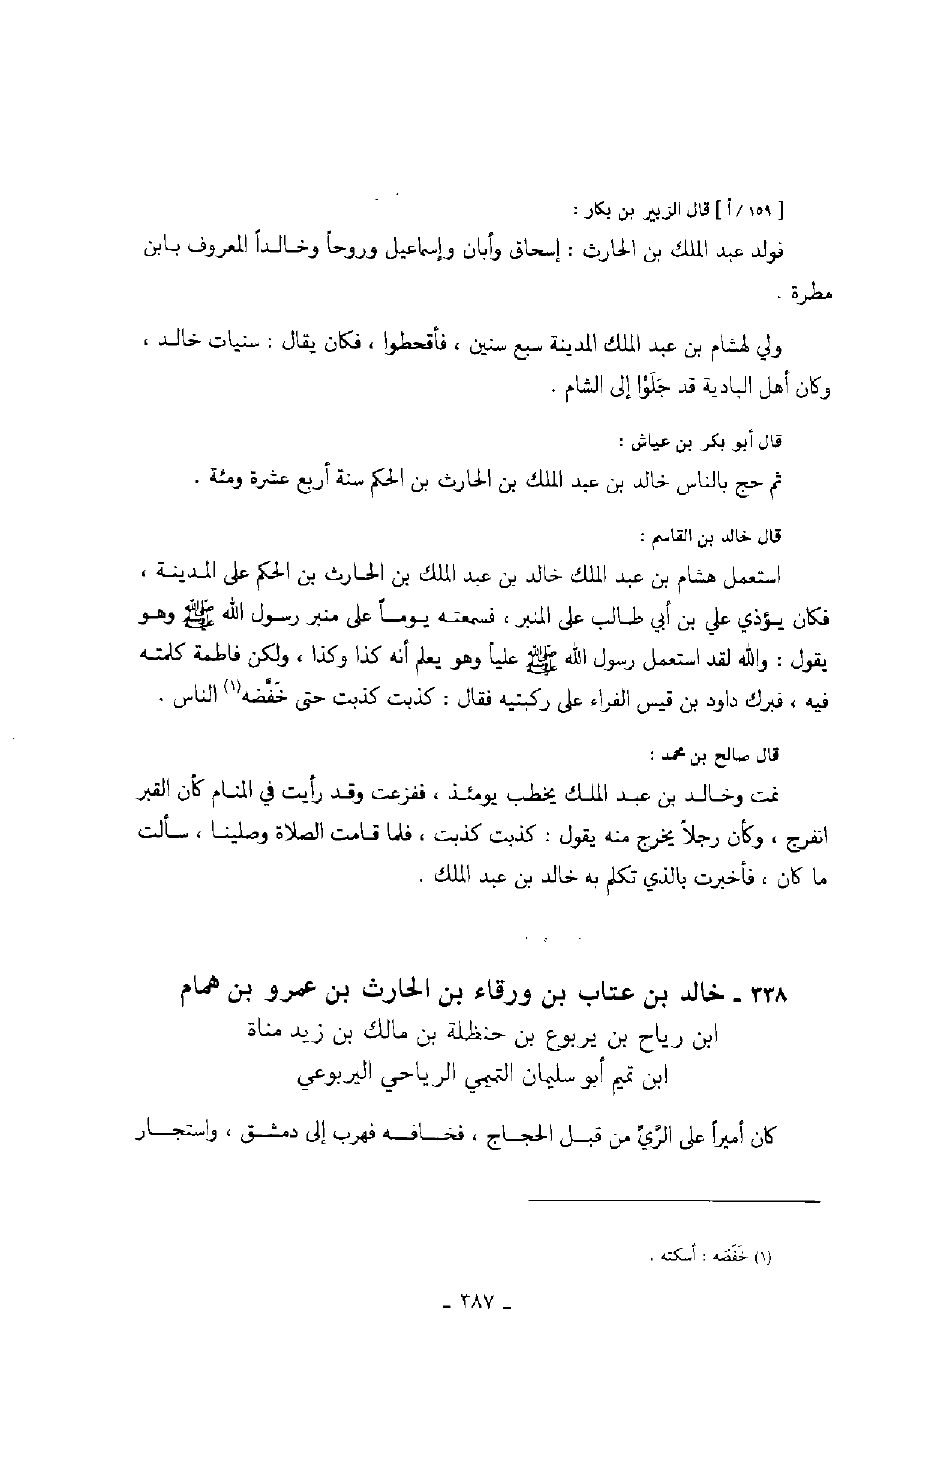 [ ١٥٩/ أ ] قال الزبير بن بكار :
فولد عبد الملك بن الحارث : إسحاق وأبان وإسماعيل وروحاً وخالداً المعروف بابن
مطرة .
ولي لهشام بن عبد الملك المدينة سبع سنين ، فأقحطوا ، فكان يقال : سنيات خالد ،
وكان أهل البادية قد جَلَوْا إلى الشام .
قال أبو بكر بن عياش :
ثم حج بالناس خالد بن عبد الملك بن الحارث بن الحكم سنة أربع عشرة ومئة .
قال خالد بن القاسم :
استعمل هشام بن عبد الملك خالد بن عبد الملك بن الحارث بن الحكم على المدينة ،
فكان يؤذي علي بن أبي طالب على المنبر ، فسمعته يوماً على منبر رسول الله ﷺ وهو
يقول : والله لقد استعمل رسول الله ﷺ علياً وهو يعلم أنه كذا وكذا ، ولكن فاطمة كلمته
فيه ، فبرك داود بن قيس الفراء على ركبتيه فقال : كذبت كذبت حتى خَفَّضه(١) الناس .
قال صالح بن محمد :
نمت وخالد بن عبد الملك يخطب يومئذ ، ففزعت وقد رأيت في المنام كأن القبر
انفرج ، وكأن رجلاً يخرج منه يقول : كذبت كذبت ، فلما قامت الصلاة وصلينا ، سألت
ما كان ، فأخبرت بالذي تكلم به خالد بن عبد الملك .
٣٣٨ ـ خالد بن عتاب بن ورقاء بن الحارث بن عمرو بن همام
ابن رياح بن يربوع بن حنظلة بن مالك بن زيد مناة
ابن تميم أبو سليمان التميمي الرياحي اليربوعي
كان أميراً على الرَّيّ من قبل الحجاج ، فخافه فهرب إلى دمشق ، واستجار
(١) خَفَّضه : أسكته .
ـ ٣٨٧ ـ